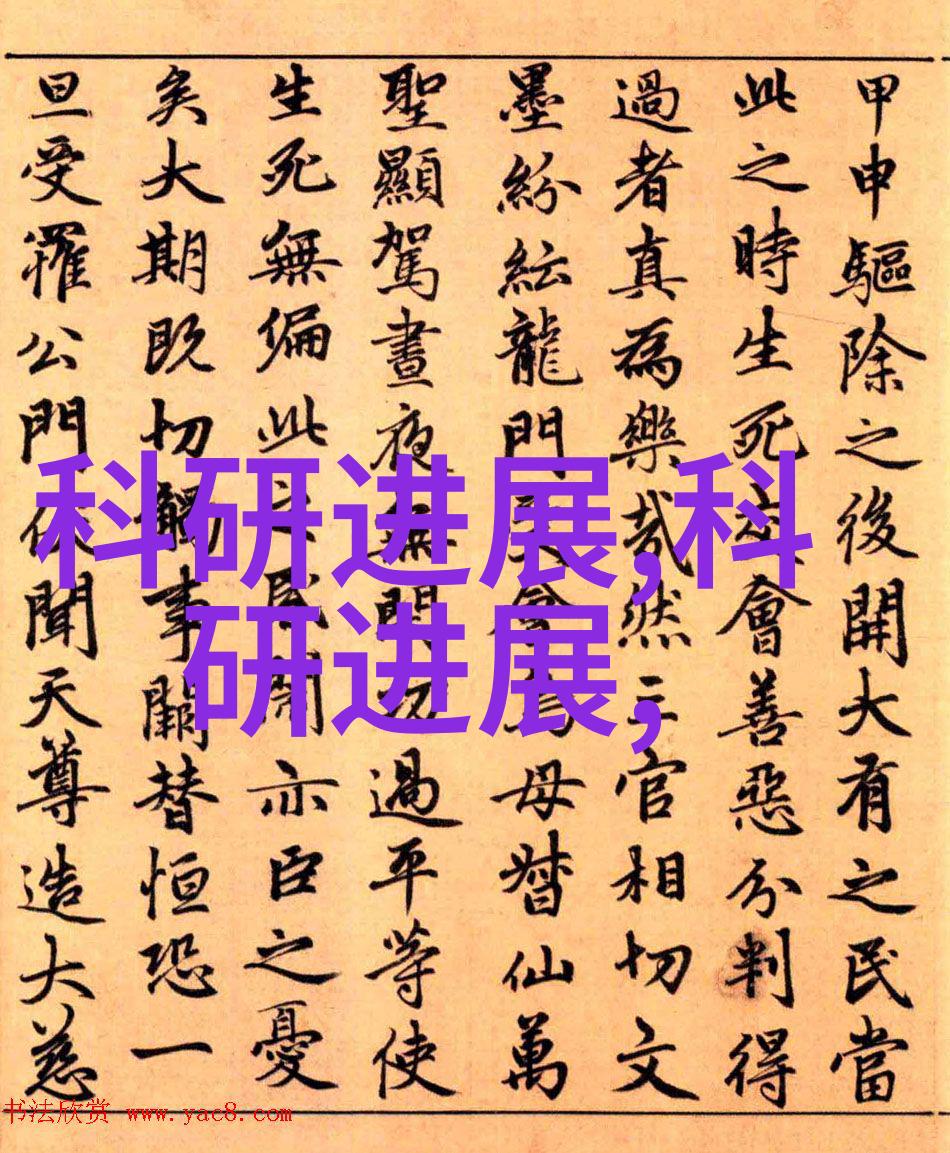 甲申驅除之後開大有之民當
此之時生死交會善惡分判得
過者真為樂哉然三官相切文
墨紛紜龍門受會鳥母督仙萬
聖顯駕晝夜無閒功過平等使
生死無偏此之民閒亦臣之憂
矣大期既切觸事關替恒恐一
旦受罹公門伏聞天尊造大慈
科研进展,科
研进展,
书法欣赏 www.yac8.com